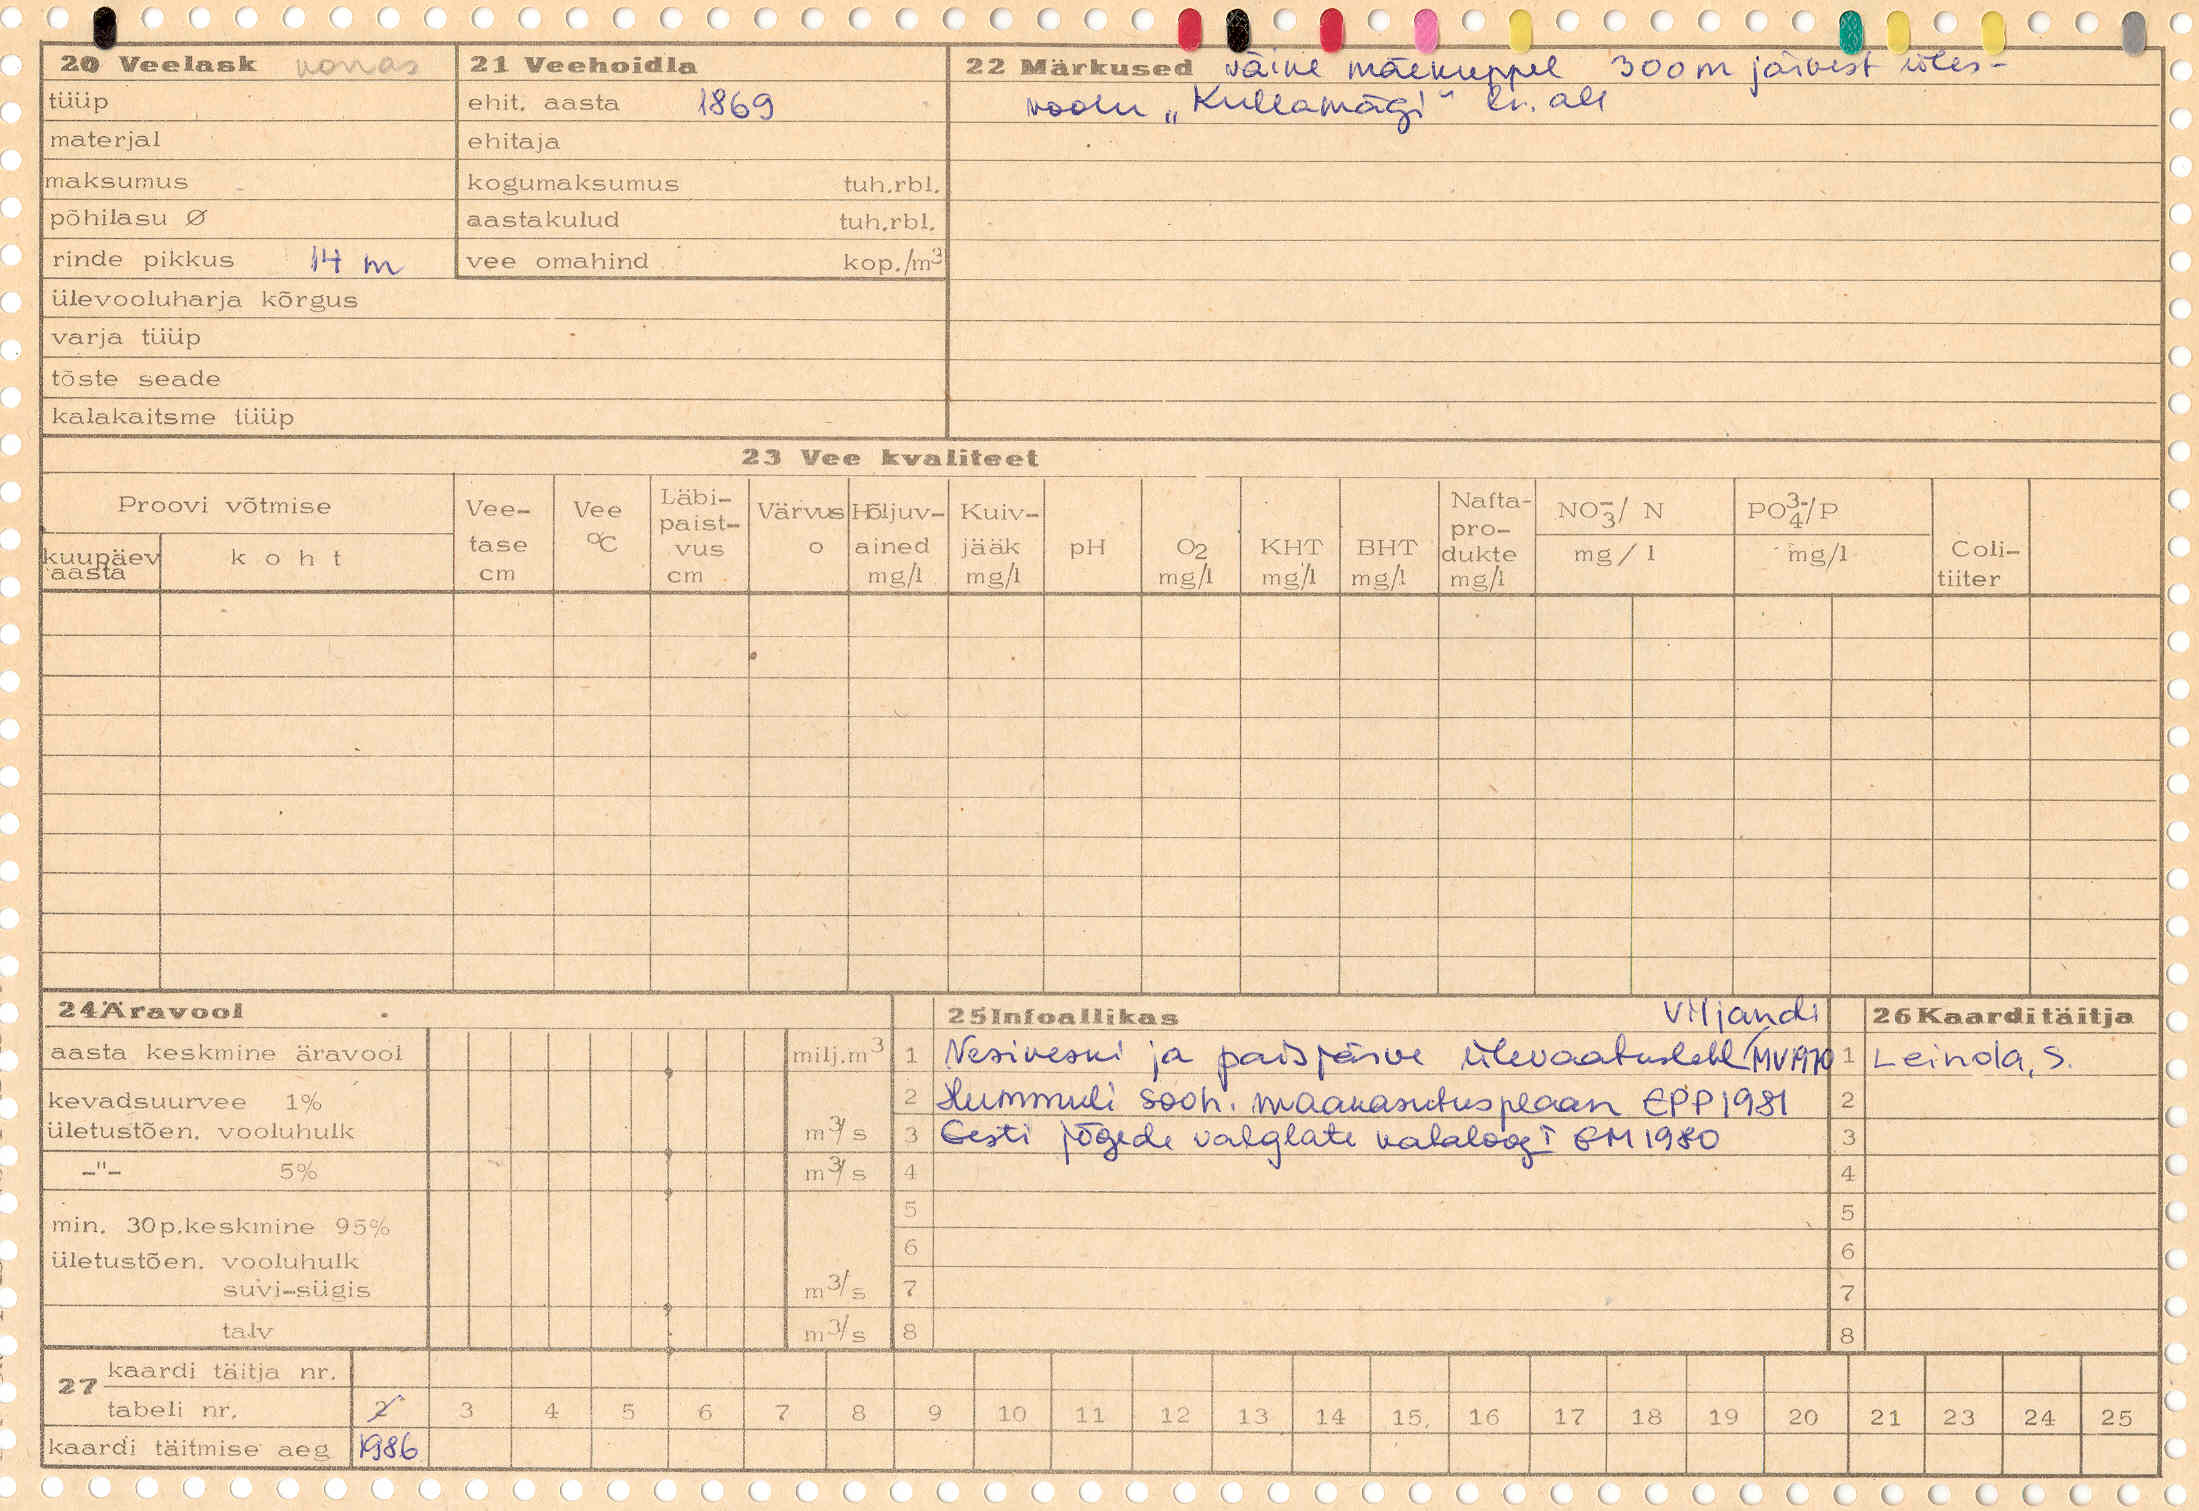 20 Veelask korras
tüüp
materjal
maksumus
põhilasu Ø
rinde pikkus 14 m
ülevooluharja kõrgus
varja tüüp
tõste seade
kalakaitsme tüüp
21 Veehoidla
ehit. aasta 1869
ehitaja
kogumaksumus tuh.rbl.
aastakulud tuh.rbl.
vee omahind kop./m³
22 Märkused väike mäekuppel 300m järvest üles-
voolu „Kullamägi" lk. all
23 Vee kvaliteet
Proovi võtmise
kuupäev aasta
koht
Vee-tase cm
Vee °C
Läbi-paist-vus cm
Värvus o
Hõljuv-ained mg/l
Kuiv-jääk mg/l
pH
O2 mg/l
KHT mg/l
BHT mg/l
Nafta-pro-dukte mg/l
NO₃⁻/ N mg/l
PO₄³⁻/P mg/l
Coli-tiiter
24 Äravool
aasta keskmine äravool milj.m³
kevadsuurvee 1%
ületustõen. vooluhulk m³/s
-"- 5% m³/s
min. 30p.keskmine 95%
ületustõen. vooluhulk
suvi-sügis m³/s
talv m³/s
25 Infoallikas Viljandi
1 Vesiveski ja paisjärve ülevaatusleht MV1970
2 Hummuli sooh. maakasutusplaan EPP1981
3 Eesti jõgede valglate kataloog I EM 1980
4
5
6
7
8
26 Kaarditäitja
1 Leinola, S.
2
3
4
5
6
7
8
27 kaardi täitja nr.
tabeli nr. 2 3 4 5 6 7 8 9 10 11 12 13 14 15. 16 17 18 19 20 21 23 24 25
kaardi täitmise aeg 1986